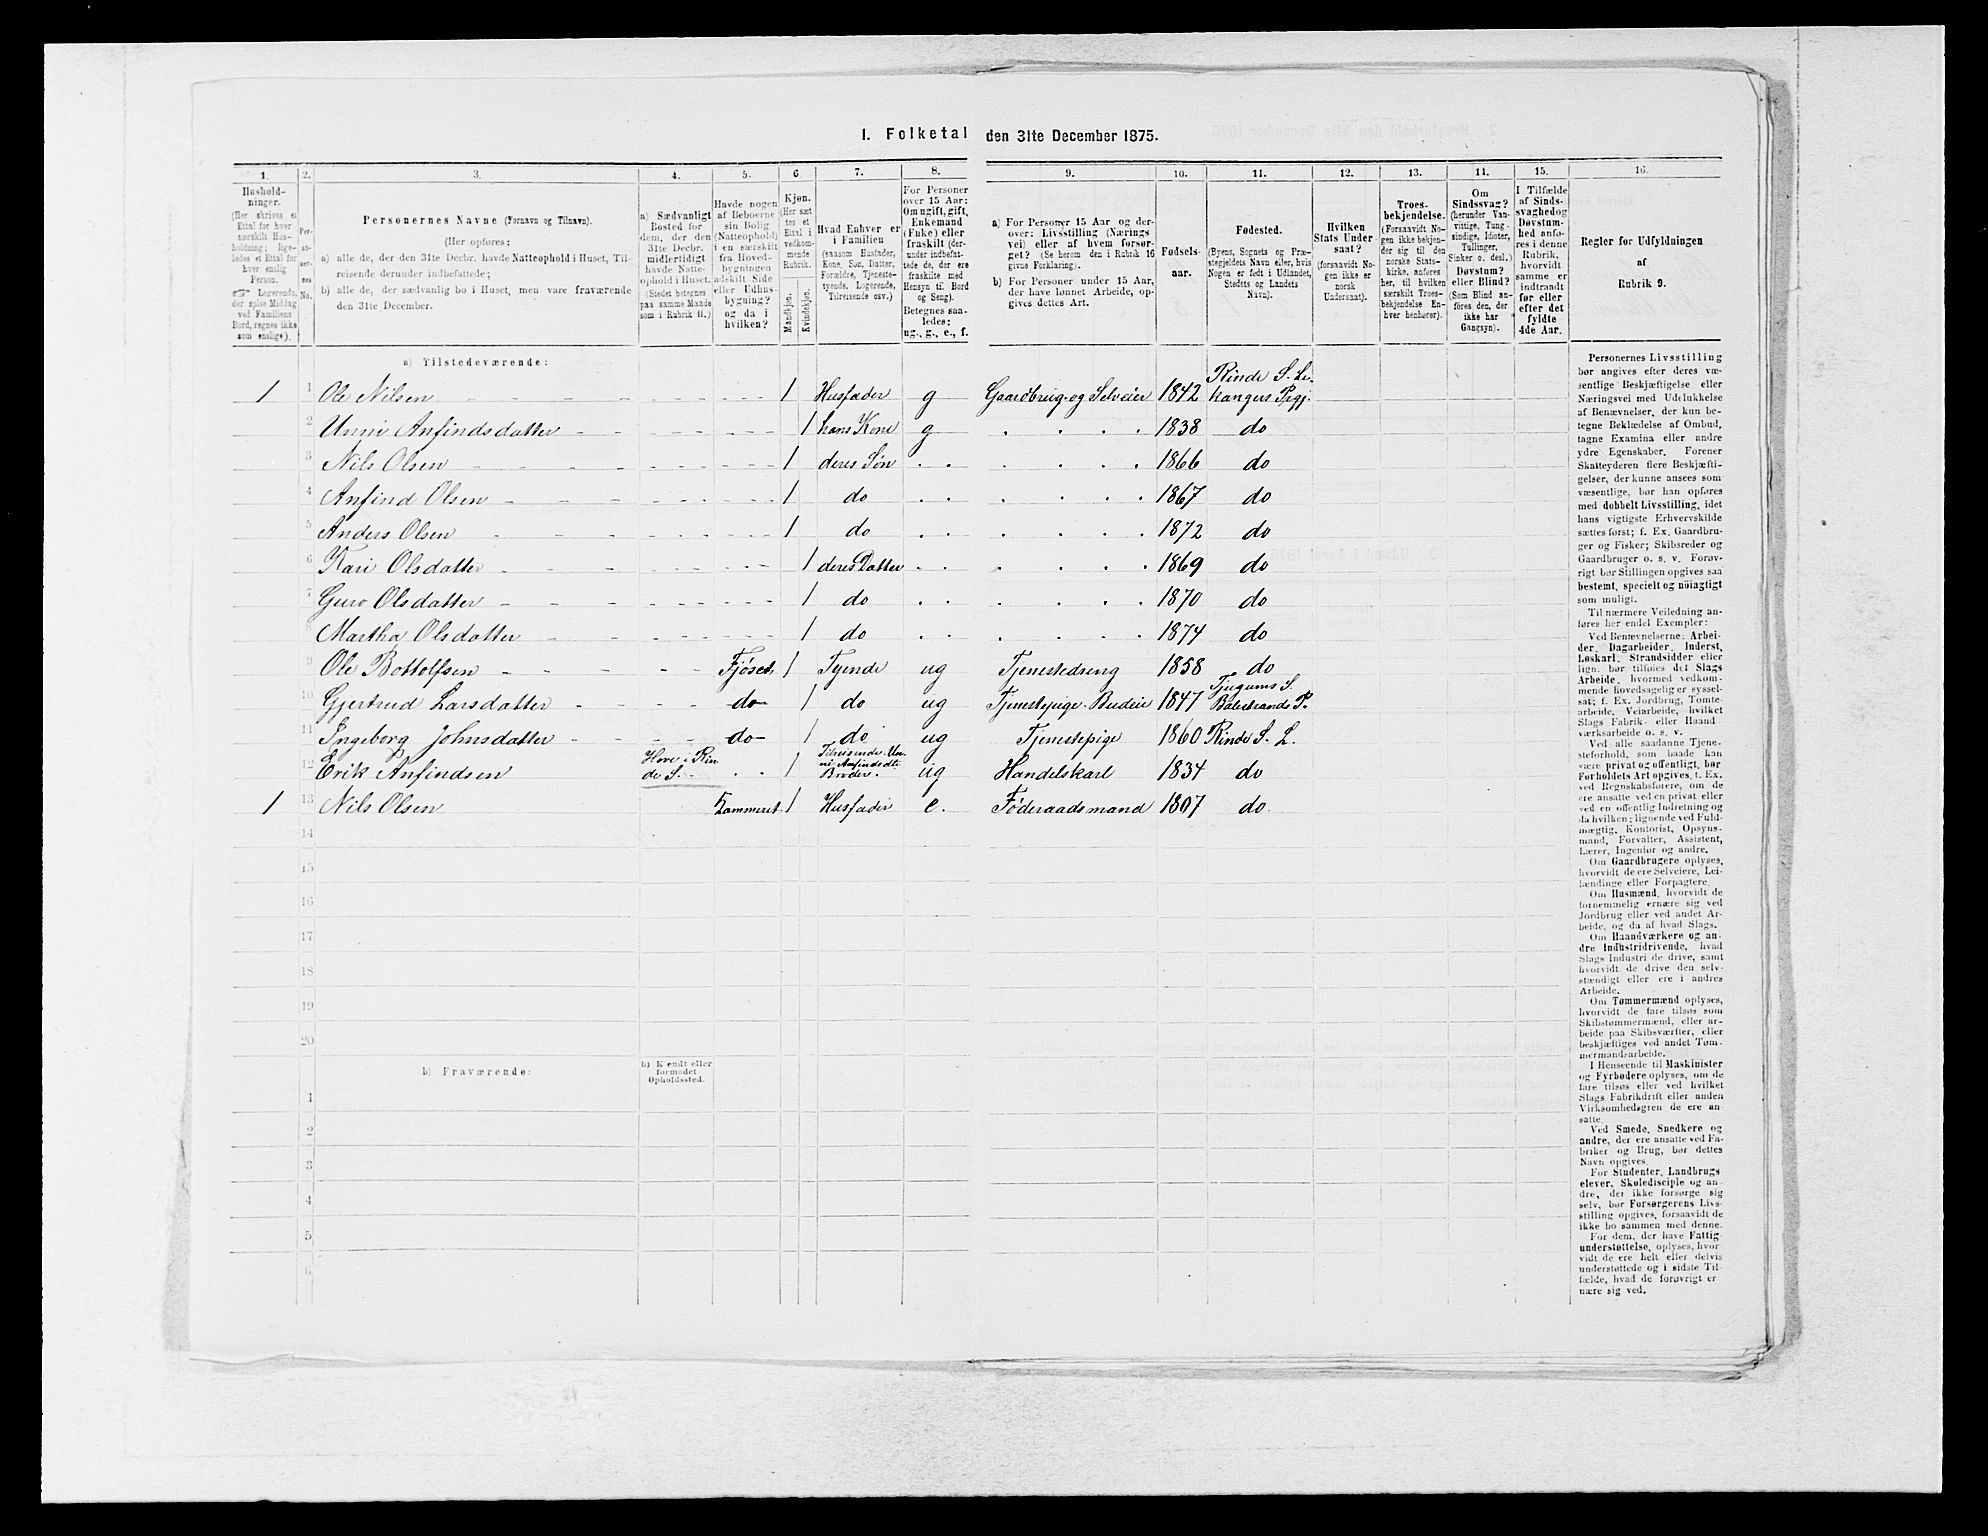 1. Folketal den 31te December 1875.
1. 2. 3. 4. 5. 6. 7. 8. 9. 10. 11. 12. 13. 14. 15. 16.
Hushold-
ninger.
(Her skrives et
Ettal for hver
særskilt Hus-
holdning; lige-
ledes et Ettal for
hver enslig
Person.
☞ Logerende,
der spise Middag
ved Familiens
Bord, regnes ikke
som enslige).
Per-
so-
ner-
nes
No.
Personernes Navne (Fornavn og Tilnavn).
(Her opføres:
a) alle de, der den 31te Decbr. havde Natteophold i Huset, Til-
reisende derunder indbefattede;
b) alle de, der sædvanlig bo i Huset, men vare fraværende
den 31te December.
a) Sædvanligt
Bosted for
dem, der den
31te Decbr.
midlertidigt
havde Natte-
ophold i Huset.
(Stedet betegnes
paa samme Maade
som i Rubrik 11.)
Havde nogen
af Beboerne
sin Bolig
(Natteophold)
i en særskilt
fra Hoved-
bygningen
adskilt Side-
eller Udhus-
bygning?
og da i
hvilken?
Kjøn.
(Her sæt-
tes et
Ettal i
vedkom-
mende
Rubrik.
Mandkjøn.
Kvindekjøn.
Hvad Enhver er
i Familien
(saasom Husfader,
Kone, Søn, Datter,
Forældre, Tjeneste-
tyende, Logerende,
Tilreisende osv.)
For Personer
over 15 Aar:
Om ugift, gift,
Enkemand
(Enke) eller
fraskilt (der-
under indbefat-
tede de, der ere
fraskilte med
Hensyn til Bord
og Seng).
Betegnes saa-
ledes:
ug., g., e., f.
a) For Personer 15 Aar og der-
over: Livsstilling (Nærings-
vei) eller af hvem forsør-
get? (Se herom den i Rubrik 16
givne Forklaring).
b) For Personer under 15 Aar,
der have lønnet Arbeide, op-
gives dettes Art.
Fødsels-
aar.
Fødested.
(Byens, Sognets og Præ-
stegjeldets Navn eller, hvis
Nogen er født i Udlandet,
Stedets og Landets
Navn).
Hvilken
Stats Under-
saat?
(forsaavidt No-
gen ikke er
norsk
Undersaat).
Troes-
bekjendelse.
(Forsaavidt No-
gen ikke bekjen-
der sig til den
norske Stats-
kirke, anføres
her, til hvilken
særskilt Troes-
bekjendelse En-
hver henhører).
Om
Sindssvag?
(herunder Van-
vittige, Tung-
sindige, Idioter,
Tullinger,
Sinker o. desl.)
Døvstum?
eller Blind?
(Som Blind an-
føres den, der
ikke har
Gangsyn).
I Tilfælde
af Sinds-
svaghed og
Døvstum-
hed anfø-
res i denne
Rubrik,
hvorvidt
samme er
indtraadt
før eller
efter det
fyldte
4de Aar.
Regler for Udfyldningen
af
Rubrik 9.
a) Tilstedeværende:
1 1 Ole Nilsen 1 Husfader g Gaardbrug- og Selveier 1842 Rinde S. Le-
kangers Prgj.
2 Unni Anfindsdatter 1 hans Kone g 1838 do
3 Nils Olsen 1 deres Søn 1866 do
4 Anfind Olsen 1 do 1867 do
5 Anders Olsen 1 do 1872 do
6 Kari Olsdatter 1 deres Datter 1869 do
7 Guro Olsdatter 1 do 1870 do
8 Martha Olsdatter 1 do 1874 do
9 Ole Bottolfsen Fjøset 1 Tyende ug Tjenestedreng 1858 do
10 Gjertrud Larsdatter do 1 do ug Tjenestepige - Budeie 1847 Tjugums S.
Balestrands P.
11 Ingeborg Johnsdatter do 1 do ug Tjenestepige 1860 Rinde S. L.
12 Erik Anfindsen Hove i Rin
de S. 1 Tilreisende - Un-
ni Anfindsdtr
Broder. ug Handelskarl 1834 do
1 13 Nils Olsen Kammeret 1 Husfader e. Føderaadsmand 1807 do
14
15
16
17
18
19
20
b) Fraværende:
b) Kjendt eller
formodet
Opholdssted.
1
2
3
4
5
6
Personernes Livsstilling
bør angives efter deres væ-
sentlige Beskjæftigelse eller
Næringsvei med Udelukkelse
af Benævnelser, der kun be-
tegne Beklædelse af Ombud,
tagne Examina eller andre
ydre Egenskaber. Forener
Skatteyderen flere Beskjæfti-
gelser, der kunne ansees som
væsentlige, bør han opføres
med dobbelt Livsstilling, idet
hans vigtigste Erhvervskilde
sættes først; f. Ex. Gaardbru-
ger og Fisker; Skibsreder og
Gaardbruger o. s. v. Forøv-
rigt bør Stillingen opgives saa
bestemt, specielt og nöiagtigt
som muligt.
Til nærmere Veiledning an-
føres her endel Exempler:
Ved Benævnelserne: Arbei-
der, Dagarbeider, Inderst,
Løskarl, Strandsidder eller
lign. bør tilføies det Slags
Arbeide, hvormed vedkom-
mende hovedsagelig er syssel-
sat; f. Ex. Jordbrug, Tomte-
arbeide, Veiarbeide, hvilket
Slags Fabrik- eller Haand-
værksarbeide o. s. v.
Ved alle saadanne Tjene-
steforhold, som baade kan
være privat og offentligt, bør
Forholdets Art opgives, f. Ex.
ved Regnskabsførere, om de
ere ansatte ved en privat eller
ved en offentlig Indretning og
da hvilken; lignende ved Fuld-
mægtig, Kontorist, Opsyns-
mand, Forvalter, Assistent,
Lærer, Ingeniør og andre.
Om Gaardbrugere oplyses,
hvorvidt de ere Selveiere, Lei-
lændinge eller Forpagtere.
Om Husmænd, hvorvidt de
fornemmelig ernære sig ved
Jordbrug eller ved andet Ar-
beide, og da af hvad Slags.
Om Haandværkere og an-
dre Industridrivende, hvad
Slags Industri de drive, samt
hvorvidt de drive den selv-
stændigt eller ere i andres
Arbeide.
Om Tømmermænd oplyses,
hvorvidt de fare tilsøs som
Skibstømmermænd, eller ar-
beide paa Skibsværfter, eller
beskjæftiges ved andet Tøm-
mermandsarbeide.
I Henseende til Maskinister
og Fyrbødere oplyses, om de
fare tilsøs eller ved hvilket
Slags Fabrikdrift eller anden
Virksomhedsgren de ere an-
satte.
Ved Smede, Snedkere og
andre, der ere ansatte ved Fa-
briker og Brug, bør dettes
Navn opgives.
For Studenter, Landbrugs
elever, Skoledisciple og an-
dre, der ikke forsørge sig
selv, bør Forsørgerens Livs-
stilling opgives, forsaavidt de
ikke bo sammen med denne.
For dem, der have Fattig-
understøttelse, oplyses, hvor-
vidt de ere helt eller delvis
understøttede og i sidste Til-
fælde, hvad de forøvrigt er-
nære sig ved.